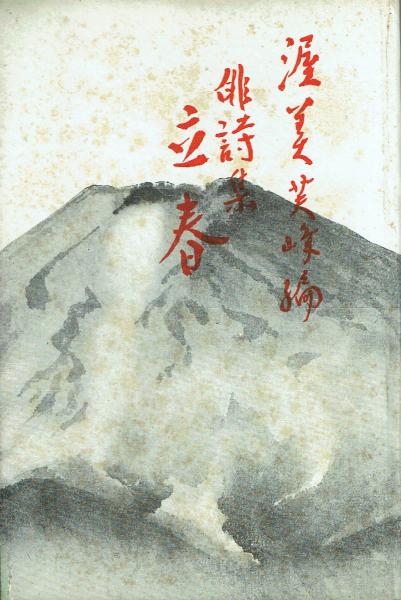 渥美芙峰編
俳詩集
立春